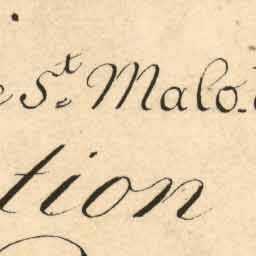 e S.t Malo.
tion